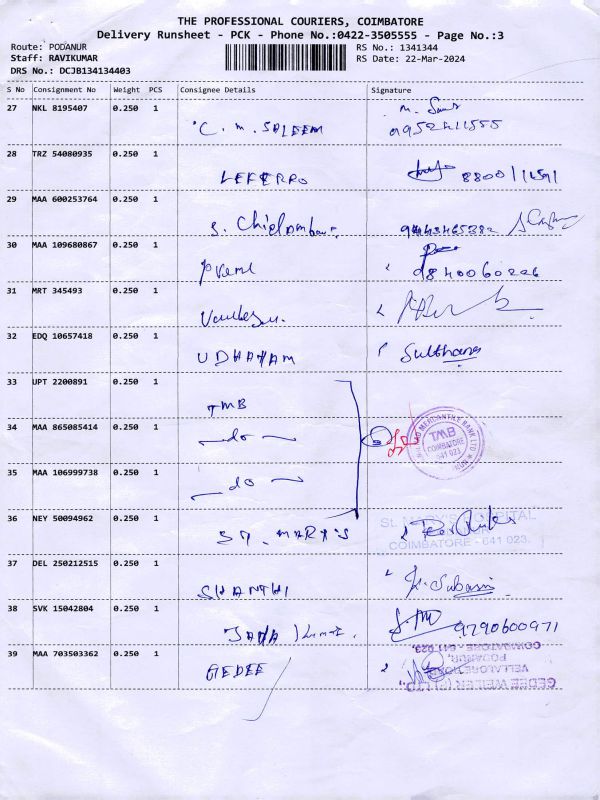 THE PROFESSIONAL COURIERS, COIMBATORE
Delivery Runsheet - PCK - Phone No.:0422-3505555 - Page No.:3
Route: PODANUR
Staff: RAVIKUMAR
DRS No.: DCJB134134403
RS No.: 1341344
RS Date: 22-Mar-2024
S No Consignment No Weight PCS Consignee Details Signature
27 NKL 8195407 0.250 1
C. M. SALEEM
28 TRZ 54080935 0.250 1
LEFERRO
29 MAA 600253764 0.250 1
S.
30 MAA 109680867 0.250 1
9840060226
31 MRT 345493 0.250 1
32 EDQ 10657418 0.250 1
UDHAYAM Sulthana
33 UPT 2200891 0.250 1
TMB
34 MAA 865085414 0.250 1
do
MERCANTILE BANK LTD
TMB
COIMBATORE
641 023
35 MAA 106999738 0.250 1
do
36 NEY 50094962 0.250 1
ST. MARY'S
St. MARY'S HOSPITAL
COIMBATORE - 641 023.
37 DEL 250212515 0.250 1
SHANTHI
38 SVK 15042804 0.250 1
9290600971
39 MAA 703503362 0.250 1
GEDEE
COIMBATORE - 641 023.
PODANUR,
VELLALORE ROAD,
GEDEE WEILER (P) LTD.,